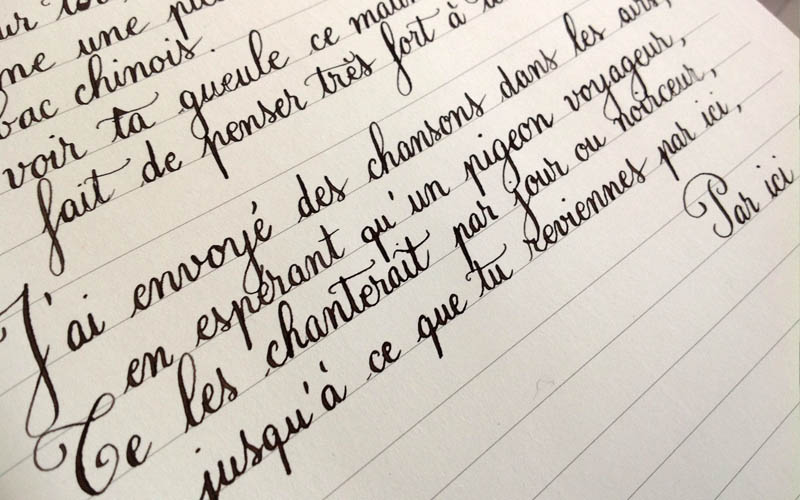 une
chinois.
voir ta gueule ce
fait de penser très fort à
J'ai envoyé des chansons dans les airs,
en espérant qu'un pigeon voyageur,
Te les chanterait par jour ou noirceur,
jusqu'à ce que tu reviennes par ici,
Par ici